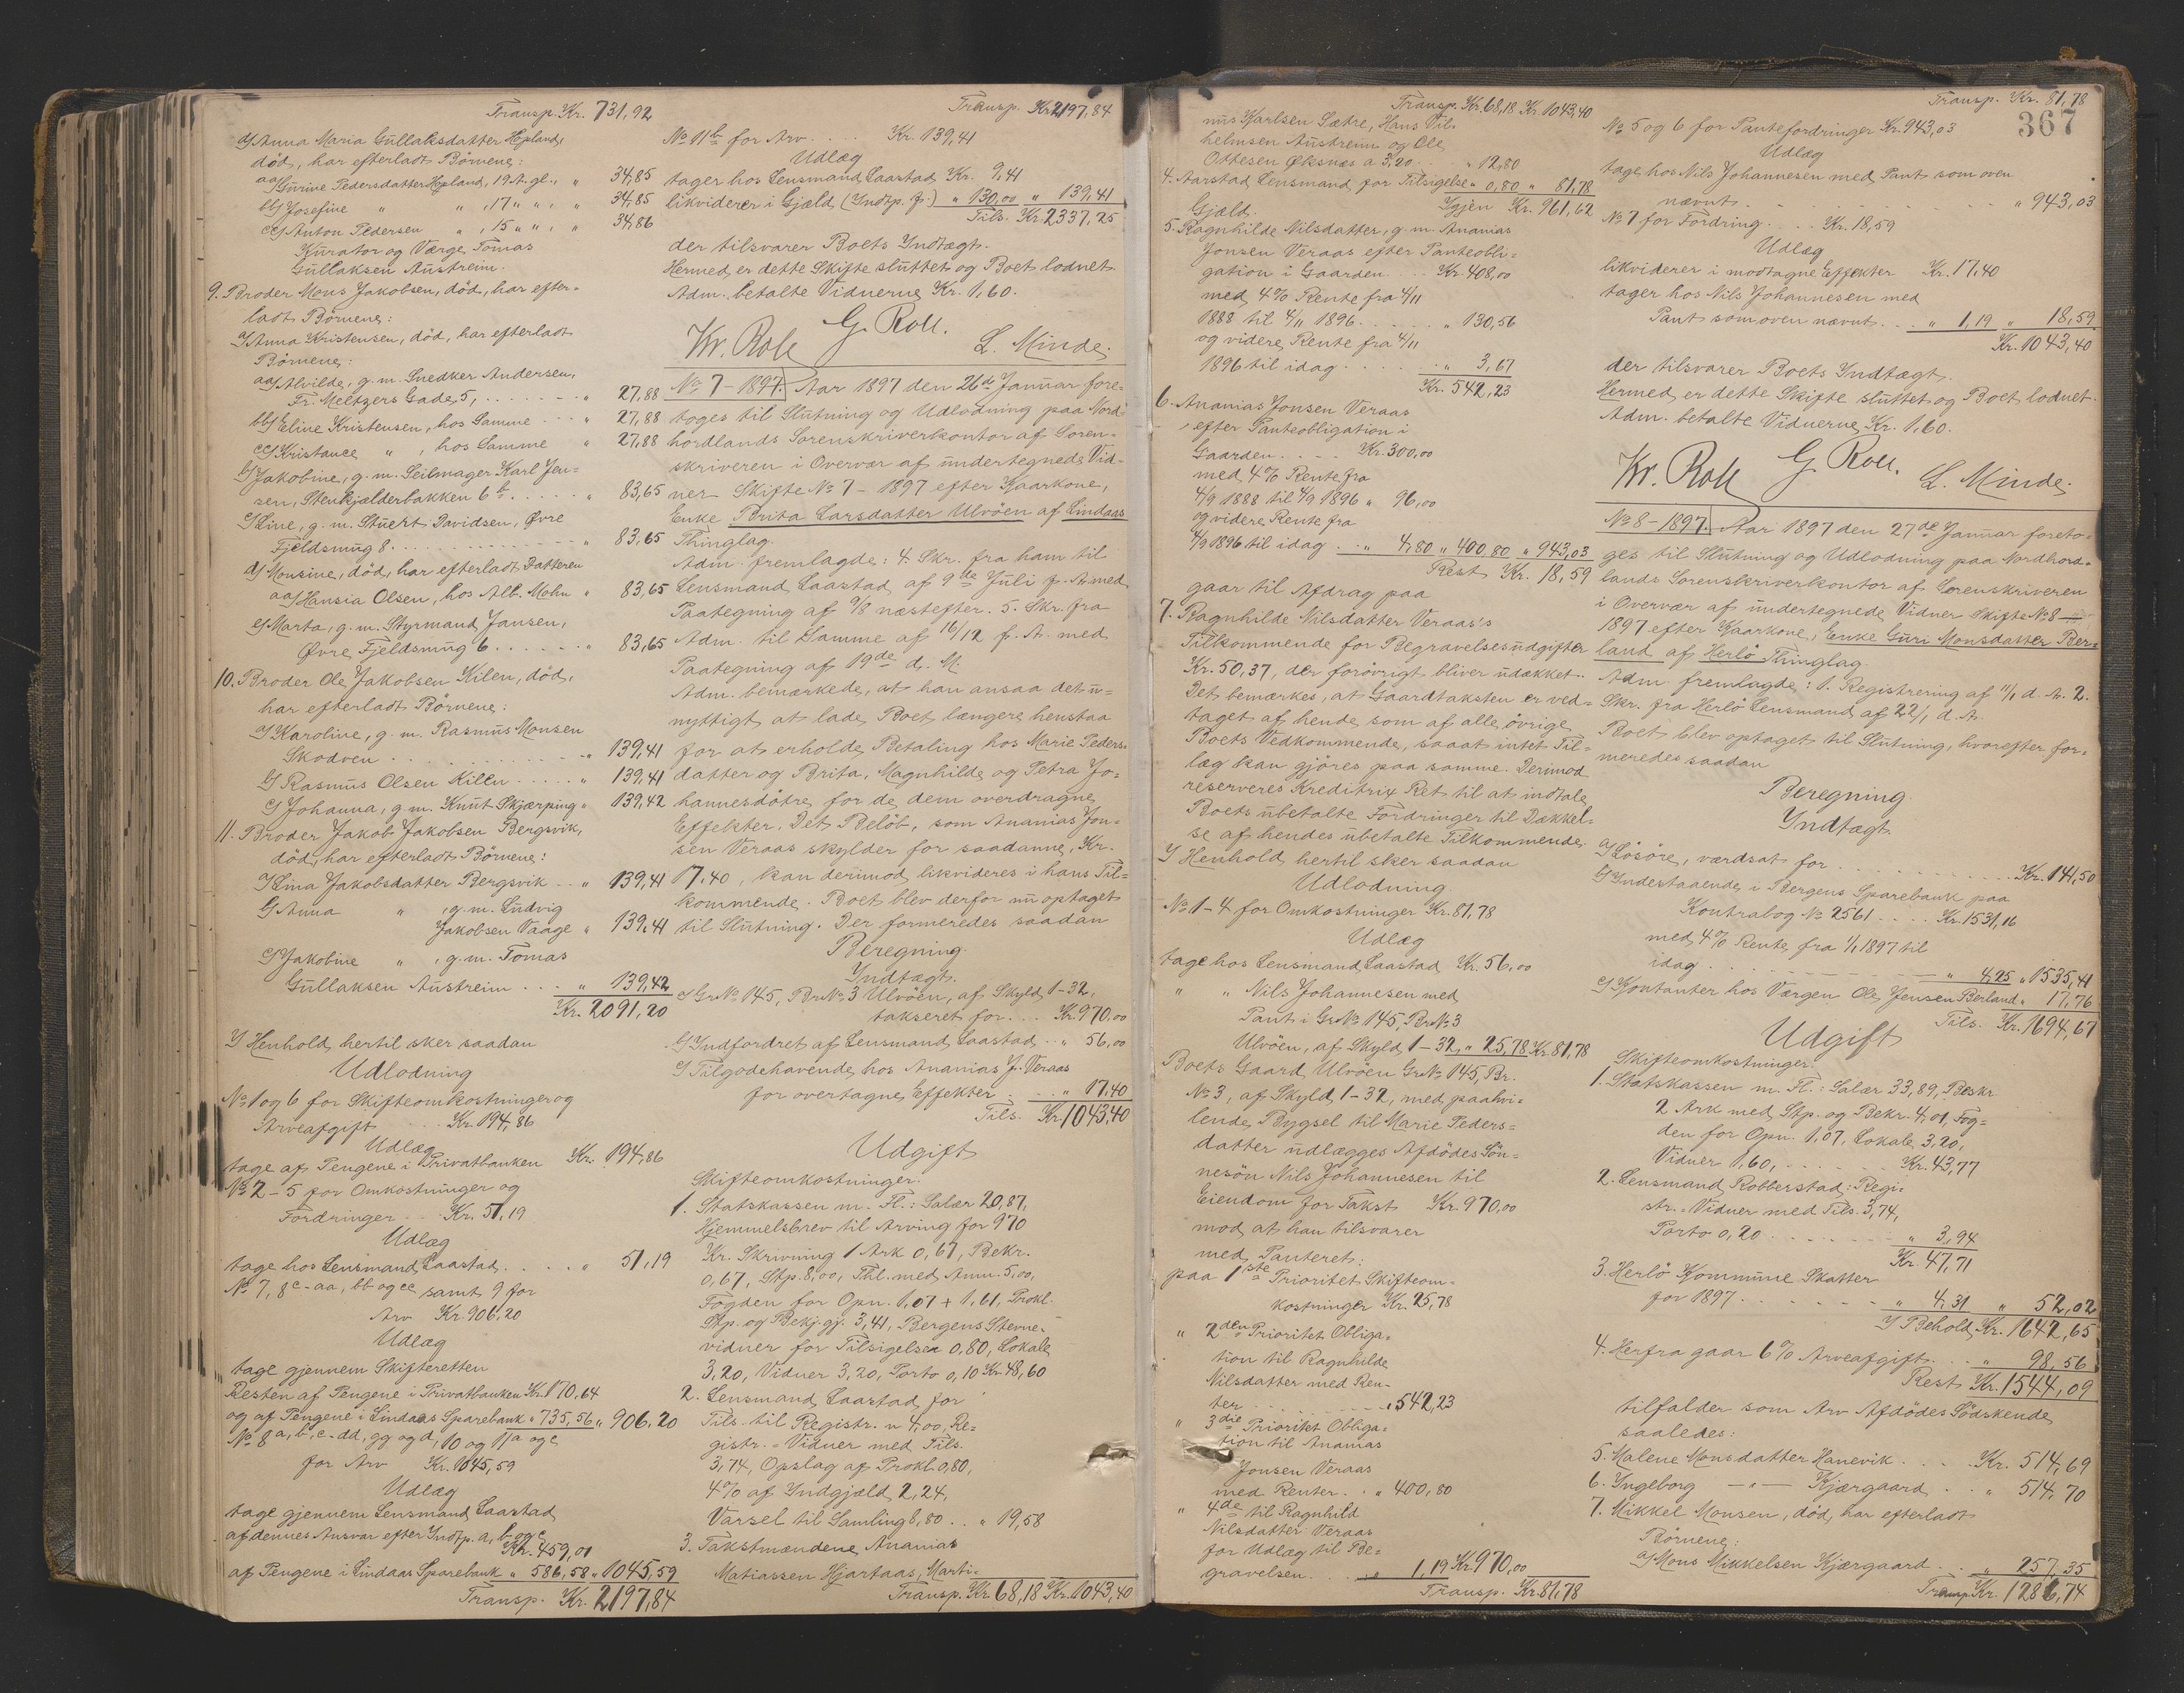 Transp. Kr. 731,92
d/ Anna Maria Gullaksdatter Hopland,
død, har efterladt Børnene:
aa/ Gurine Pedersdatter Hopland, 19 A. gl., " 34,85
bb/ Josefine " " , 17 " " , " 34,85
cc/ Anton Pedersen " , 15 " " , " 34,86
Kurator og Værge Tomas
Gullaksen Austreim.
9. Broder Mons Jakobsen, død, har efter-
ladt Børnene:
a/ Anna Kristensen, død, har efterladt
Børnene:
aa/ Alvilde, g. m. Snedker Andersen,
Fr. Meltzers Gade 5, . . . . . . " 27,88
bb/ Eline Kristensen, hos Samme . . " 27,88
cc/ Kristance " , hos Samme " 27,88
b/ Jakobine, g. m. Seilmager Karl Jen-
sen, Stenkjælderbakken 6 b . . . . . " 83,65
c/ Line, g. m. Stuert Davidsen, Øvre
Fjeldsmug 8 . . . . . . . . . . " 83,65
d/ Monsine, død, har efterladt Datteren
aa/ Hansia Olsen, hos Alb. Mohn " 83,65
e/ Marta, g. m. Styrmand Jansen,
Øvre Fjeldsmug 6 . . . . . . . " 83,65
10. Broder Ole Jakobsen Kilen, død,
har efterladt Børnene:
a/ Karoline, g. m. Rasmus Monsen
Skodven . . . . . . . . . . . " 139,41
b/ Rasmus Olsen Kilen . . . . . " 139,41
c/ Johanna, g. m. Knut Skjærping " 139,42
11. Broder Jakob Jakobsen Bergsvik,
død, har efterladt Børnene:
a/ Lina Jakobsdatter Bergsvik . . " 139,41
b/ Anna " , g. m. Ludvig
Jakobsen Vaage " 139,41
c/ Jakobine " , g. m. Tomas
Gullaksen Austreim . . . " 139,42
Kr. 2091,20
I Henhold hertil sker saadan
Udlodning
No 1 og 6 for Skifteomkostninger og
Arveafgift . . . Kr. 194,86
Udlæg
tage af Pengene i Privatbanken Kr. 194,86
No 2 - 5 for Omkostninger og
Fordringer . . . Kr. 51,19
Udlæg
tage hos Lensmand Laastad . . . . . " 51,19
No 7, 8 c - aa, bb og cc samt 9 for
Arv Kr. 906,20
Udlæg
tage gjennem Skifteretten
Resten af Pengene i Privatbanken Kr. 170,64
og af Pengene i Lindaas Sparebank " 735,56 " 906,20
No 8 a, b, c - dd, gg og d, 10 og 11 a og c
for Arv Kr. 1045,59
Udlæg
tage gjennem Lensmand Laastad
af dennes Ansvar efter Indtp. a, b og c
Kr. 459,01
af Pengene i Lindaas Sparebank " 586,58 " 1045,59
Transp. Kr. 2197,84
Transp. Kr. 2197,84
No 11 b for Arv . . . . Kr. 139,41
Udlæg
tager hos Lensmand Laastad Kr. 9,41
likviderer i Gjæld (Indtp. f.) " 130,00 " 139,41
Tils. Kr. 2337,25
der tilsvarer Boets Indtægt.
Hermed er dette Skifte sluttet og Boet lodnet.
Adm. betalte Vidnerne Kr. 1,60.
Kr. Roll G. Roll. L. Minde.
No 7 - 1897. Aar 1897 den 26de Januar fore-
toges til Slutning og Udlodning paa Nord-
hordlands Sorenskriverkontor af Soren-
skriveren i Overvær af undertegnede Vid-
ner Skifte No 7 - 1897 efter Kaarkone,
Enke Brita Larsdatter Ulvöen af Lindaas
Thinglag.
Adm. fremlagde: 4. Skr. fra ham til
Lensmand Laastad af 9de Juli f. A. med
Paategning af 9/8 næstefter. 5. Skr. fra
Adm. til Samme af 16/12 f. A. med
Paategning af 19de d. M.
Adm. bemærkede, at han ansaa det u-
nyttigt at lade Boet længere henstaa
for at erholde Betaling hos Marie Peders-
datter og Brita, Magnhilde og Petra Jo-
hannesdötre for de dem overdragne
Effekter. Det Belöb, som Ananias Jon-
sen Veraas skylder for saadanne, Kr.
17,40, kan derimod likvideres i hans Til-
kommende. Boet blev derfor nu optaget
til Slutning. Der formeredes saadan
Beregning.
Indtægt.
a/ Gr. No 145, Br. No 3 Ulvöen, af Skyld 1-32,
takseret for . . . Kr. 970,00
b/ Indfordret af Lensmand Laastad . . " 56,00
c/ Tilgodehavende hos Ananias J. Veraas
for overtagne Effekter . . . . " 17,40
Tils. Kr. 1043,40
Udgift
Skifteomkostninger.
1. Statskassen m. Fl.: Salær 20,87,
Hjemmelsbrev til Arving for 970
Kr. Skrivning 1 Ark 0,67, Bekr.
0,67, Stp. 8,00, Thl. med Anm. 5,00,
Fogden for Opn. 1,07 + 1,61, Prokl.
Stp. og Bekj.gj. 3,41, Bergens Stevne-
vidner for Tilsigelsen 0,80, Lokale
3,20, Vidner 3,20, Porto 0,10 Kr. 48,60
2. Lensmand Laastad for
Tils. til Registr. n 4,00, Re-
gistr. - Vidner med Tils.
3,74, Opslag af Prokl. 0,80,
4% af Indgjæld 2,24,
Varsel til Samling 8,80 . . " 19,58
3. Takstmændene Ananias
Matiassen Hjartaas, Marti-
Transp. Kr. 68,18 Kr. 1043,40
Transp. Kr. 68,18 Kr. 1043,40
nus Karlsen Sætre, Hans Vil-
helmsen Austreim og Ole
Ottesen Øksnæs a 3,20 . . . " 12,80
4. Aarstad Lensmand for Tilsigelse " 0,80 " 81,78
Igjen Kr. 961,62
Gjæld.
5. Ragnhilde Nilsdatter, g. m. Ananias
Jonsen Veraas efter Panteobli-
gation i Gaarden . . . Kr. 408,00
med 4% Rente fra 4/11
1888 til 4/11 1896 . . . . . " 130,56
og videre Rente fra 4/11
1896 til idag . . . . . . " 3,67
Kr. 542,23
6. Ananias Jonsen Veraas
efter Panteobligation i
Gaarden . . . . Kr. 300,00
med 4% Rente fra
4/9 1888 til 4/9 1896 " 96,00
og videre Rente fra
4/9 1896 til idag . . " 4,80 " 400,80 " 943,03
Rest Kr. 18,59
gaar til Afdrag paa
7. Ragnhilde Nilsdatter Veraas's
Tilkommende for Begravelsesudgifter
Kr. 50,37, der forövrigt bliver udækket.
Det bemærkes, at Gaardtaksten er ved-
taget af hende som af alle övrige
Boets Vedkommende, saaat intet Til-
læg kan gjöres paa samme. Derimod
reserveres Kreditrix Ret til at indtale
Boets ubetalte Fordringer til Dækkel-
se af hendes ubetalte Tilkommende.
I Henhold hertil sker saadan
Udlodning.
No. 1-4 for Omkostninger Kr. 81,78
Udlæg
tage hos Lensmand Laastad Kr. 56,00
" " Nils Johannesen med
Pant i Gr. No 145, Br. No 3
Ulvöen, af Skyld 1-32, " 25,78 Kr. 81,78
Boets Gaard Ulvöen Gr. No 145, Br.
No 3, af Skyld 1-32, med paahvi-
lende Bygsel til Marie Peders-
datter udlægges Afdödes Sön-
nesön Nils Johannesen til
Eiendom for Takst Kr. 970,00
mod at han tilsvarer
med Panteret:
paa 1ste Prioritet Skifteom-
kostninger Kr. 25,78
" 2den Prioritet Obliga-
tion til Ragnhilde
Nilsdatter med Ren-
ter . . . . . . . . . " 542,23
" 3die Prioritet Obliga-
tion til Ananias
Jonsen Veraas
med Renter . . " 400,80
" 4de til Ragnhild
Nilsdatter Veraas
for Udlæg til Be-
gravelsen . . . " 1,19 Kr. 970,00
Transp. Kr. 81,78
Transp. Kr. 81,78
367
No 5 og 6 for Pantefordringer Kr. 943,03
Udlæg
tage hos Nils Johannesen med Pant som oven
nævnt . . . . . . . . . . " 943,03
No 7 for Fordring . . . . Kr. 18,59
Udlæg
likviderer i modtagne Effekter Kr. 17,40
tager hos Nils Johannesen med
Pant som oven nævnt . . . " 1,19 " 18,59
Kr. 1043,40
der tilsvarer Boets Indtægt.
Hermed er dette Skifte sluttet og Boet lodnet.
Adm. betalte Vidnerne Kr. 1,60.
Kr. Roll G. Roll. L. Minde.
No 8 - 1897. Aar 1897 den 27de Januar foreto-
ges til Slutning og Udlodning paa Nordhord-
lands Sorenskriverkontor af Sorenskriveren
i Overvær af undertegnede Vidner Skifte No 8 -
1897 efter Kaarkone, Enke Guri Monsdatter Ber-
land af Herlö Thinglag
Adm. fremlagde: 1. Registrering af 11/1 d. A. 2.
Skr. fra Herlö Lensmand af 22/1 d. A.
Boet blev optaget til Slutning, hvorefter for-
meredes saadan
Beregning.
Indtægt.
a/ Lösöre, værdsat for . . . . . . . . . . Kr. 141,50
b/ Indestaaende i Bergens Sparebank paa
Kontrabog No 2561 . . . . Kr. 1531,16
med 4% Rente fra 1/1 1897 til
idag . . . . . . . . . " 4,25 " 1535,41
c/ Kontanter hos Værgen Ole Jensen Berland " 17,76
Tils. Kr. 1694,67
Udgift
Skifteomkostninger.
1. Statskassen m. Fl.: Salær 33,89, Beskr.
2 Ark med Stp. og Bekr. 4,01, Fog-
den for Opn. 1,07, Lokale 3,20,
Vidner 1,60, . . . . . . . Kr. 43,77
2. Lensmand Robberstad: Regi-
str. - Vidner med Tils. 3,74,
Porto 0,20 . . . . . . . . " 3,94
Kr. 47,71
3. Herlö Kommune Skatter
for 1897 . . . . . . . . " 4,31 " 52,02
I Behold Kr. 1642,65
4. Herfra gaar 6% Arveafgift . . . " 98,56
Rest Kr. 1544,09
tilfalder som Arv Afdödes Södskende
saaledes:
5. Malene Monsdatter Hanevik . . . . Kr. 514,69
6. Ingeborg — " — Kjærgaard . . " 514,70
7. Mikkel Monsen, död, har efterladt
Börnene:
a/ Mons Mikkelsen Kjærgaard . . " 257,35
Transp. Kr. 1286,74